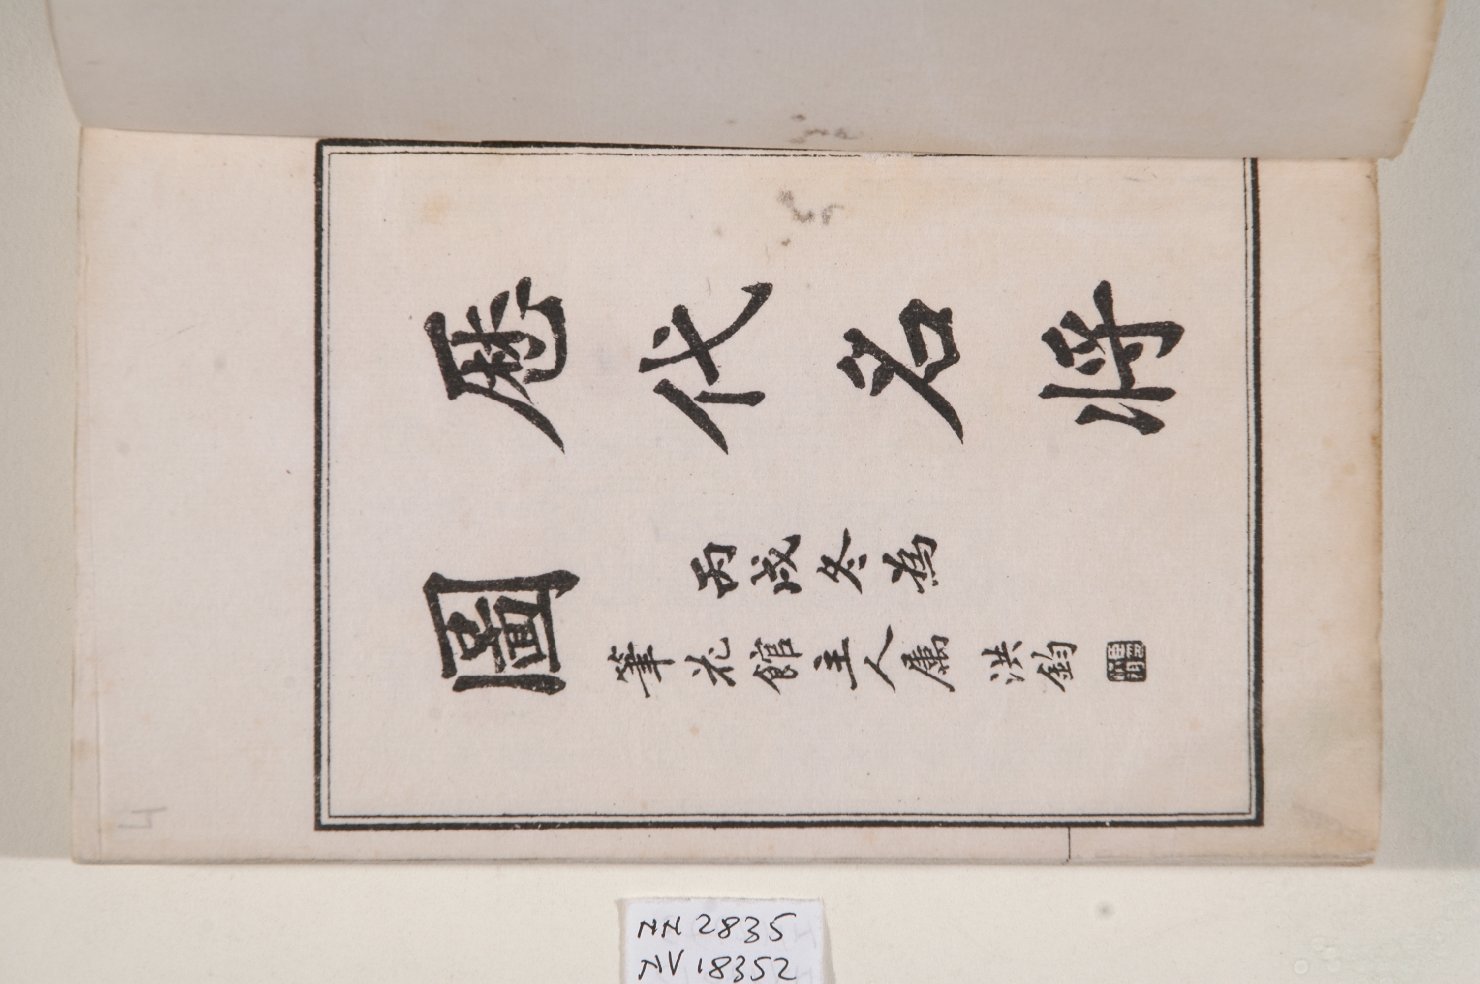 歷代名將
圖
丙戌冬為
筆花館主人屬 洪鈞
NN 2835
NV 18352